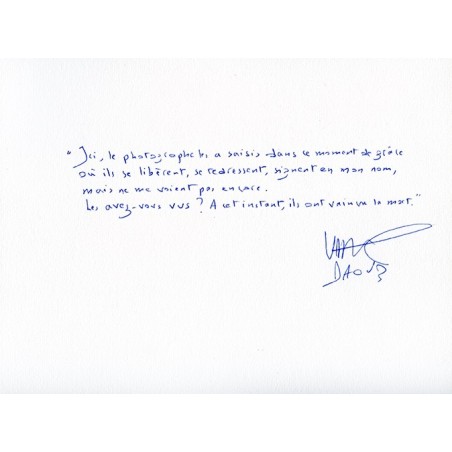 "Ici, le photographe les a saisis dans le moment de grâce
où ils se libèrent, se redressent, signent en mon nom,
mais ne me voient pas encore.
Les avez-vous vus ? A cet instant, ils ont vaincu la mort."
DAOUD